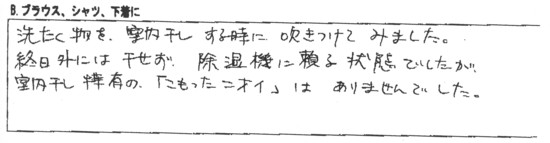 B. ブラウス、シャツ、下着に
洗たく物を、室内干しする時に吹きつけてみました。
終日外には干せず、除湿機に頼る状態でしたが、
室内干し特有の「こもったニオイ」はありませんでした。